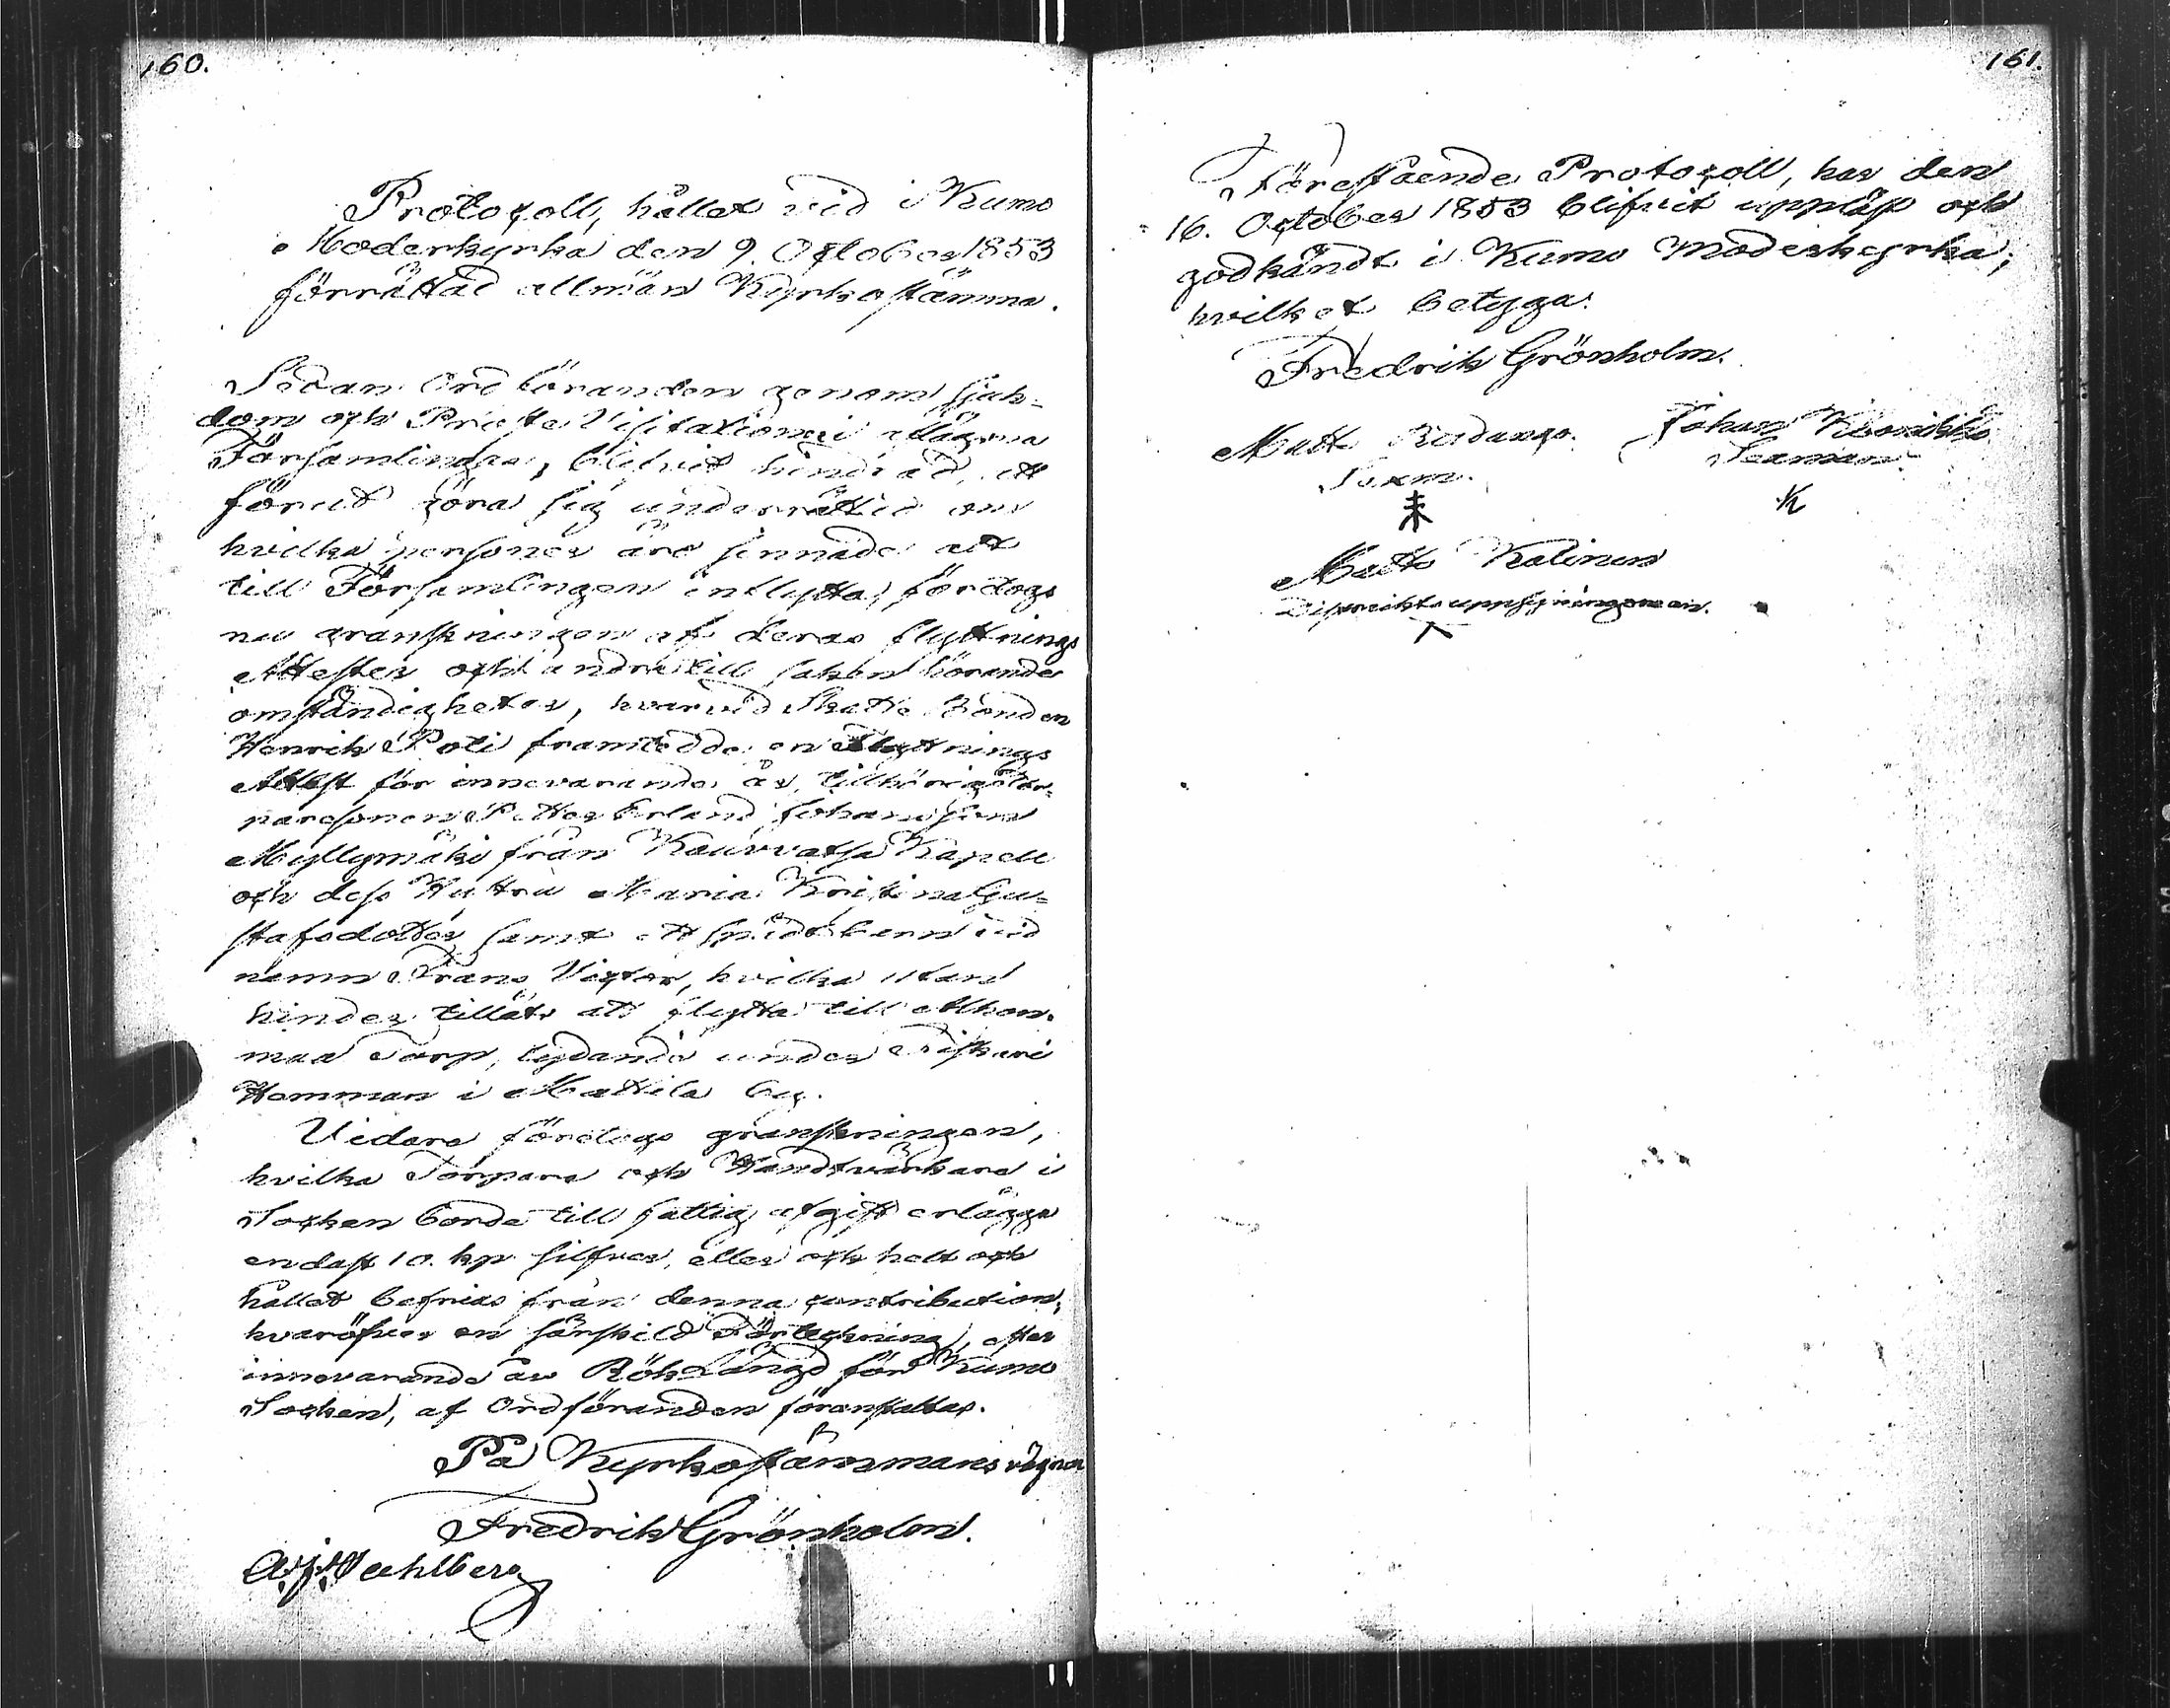 160.
Protocoll, hållet vid i Kumo
Moderkyrka den 9. October 1853
förrättad allmän Kyrkostämma.
Sedan Ordföranden genom sjuk-
dom och Prosta Visitationer i aflägsna
Församlingar, blifvit hindrad, att
förut göra sig underrättad om
hvilka personer äro sinnade att
till Församlingen inflytta, företogs
nu granskningen af deras flyttnings
Attester och andra till saken hörande
omständigheter, hvarvid Skatte Bonden
Henrik Poti framtedde en Flyttnings
Attest för innevarande år, tillhörig Tor-
paresonen Petter Erland Johansson
Myllymäki från Kauvvatsa Kapell
och dess Hustru Maria Kristina Gu-
stafsdotter samt ett späd barn vid
namn Frans Victor, hvilka utan
hinder tilläts att flytta till Alhon-
maa Torp, lydande under Piskari
Hemman i Mattila by.
Vidare företogs granskningen,
hvilka Torpare och Handtvärkare i
Socken borde till fattig afgift erlägga
endast 10. kp. silfver, eller och helt och
hållet befrias från denna contribution,
hvaröfver en särskild Förteckning, efter
innevarande års Röklängd för Kumo
Socken, af Ordföranden föranstaltas.
På Kyrkostämmans vägnar
Fredrik Grönholm.
A. J. Wahlberg
161.
Förestående Protocoll, har den
16. October 1853 blifvit uppläst och
godkändt i Kumo Moderkyrka;
hvilket betyga:
Fredrik Grönholm.
Matts Johan
Sexm.
Matts Kalinen
Districkts uppsyningsman.